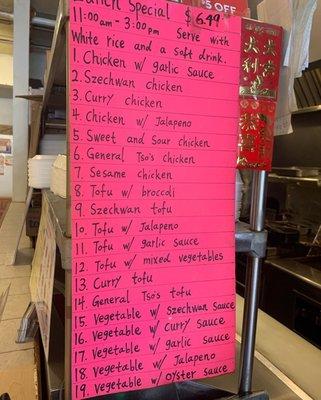 Lunch Special $6.99
11:00am - 3:00pm Serve with
White rice and a soft drink.
1. Chicken w/ garlic sauce
2. Szechwan chicken
3. Curry chicken
4. Chicken w/ Jalapeno
5. Sweet and Sour chicken
6. General Tso's chicken
7. Sesame chicken
8. Tofu w/ broccoli
9. Szechwan tofu
10. Tofu w/ Jalapeno
11. Tofu w/ garlic sauce
12. Tofu w/ mixed vegetables
13. Curry tofu
14. General Tso's tofu
15. Vegetable w/ Szechwan sauce
16. Vegetable w/ Curry sauce
17. Vegetable w/ garlic sauce
18. Vegetable w/ Jalapeno
19. Vegetable w/ oyster sauce
$5 OFF
大吉
大利